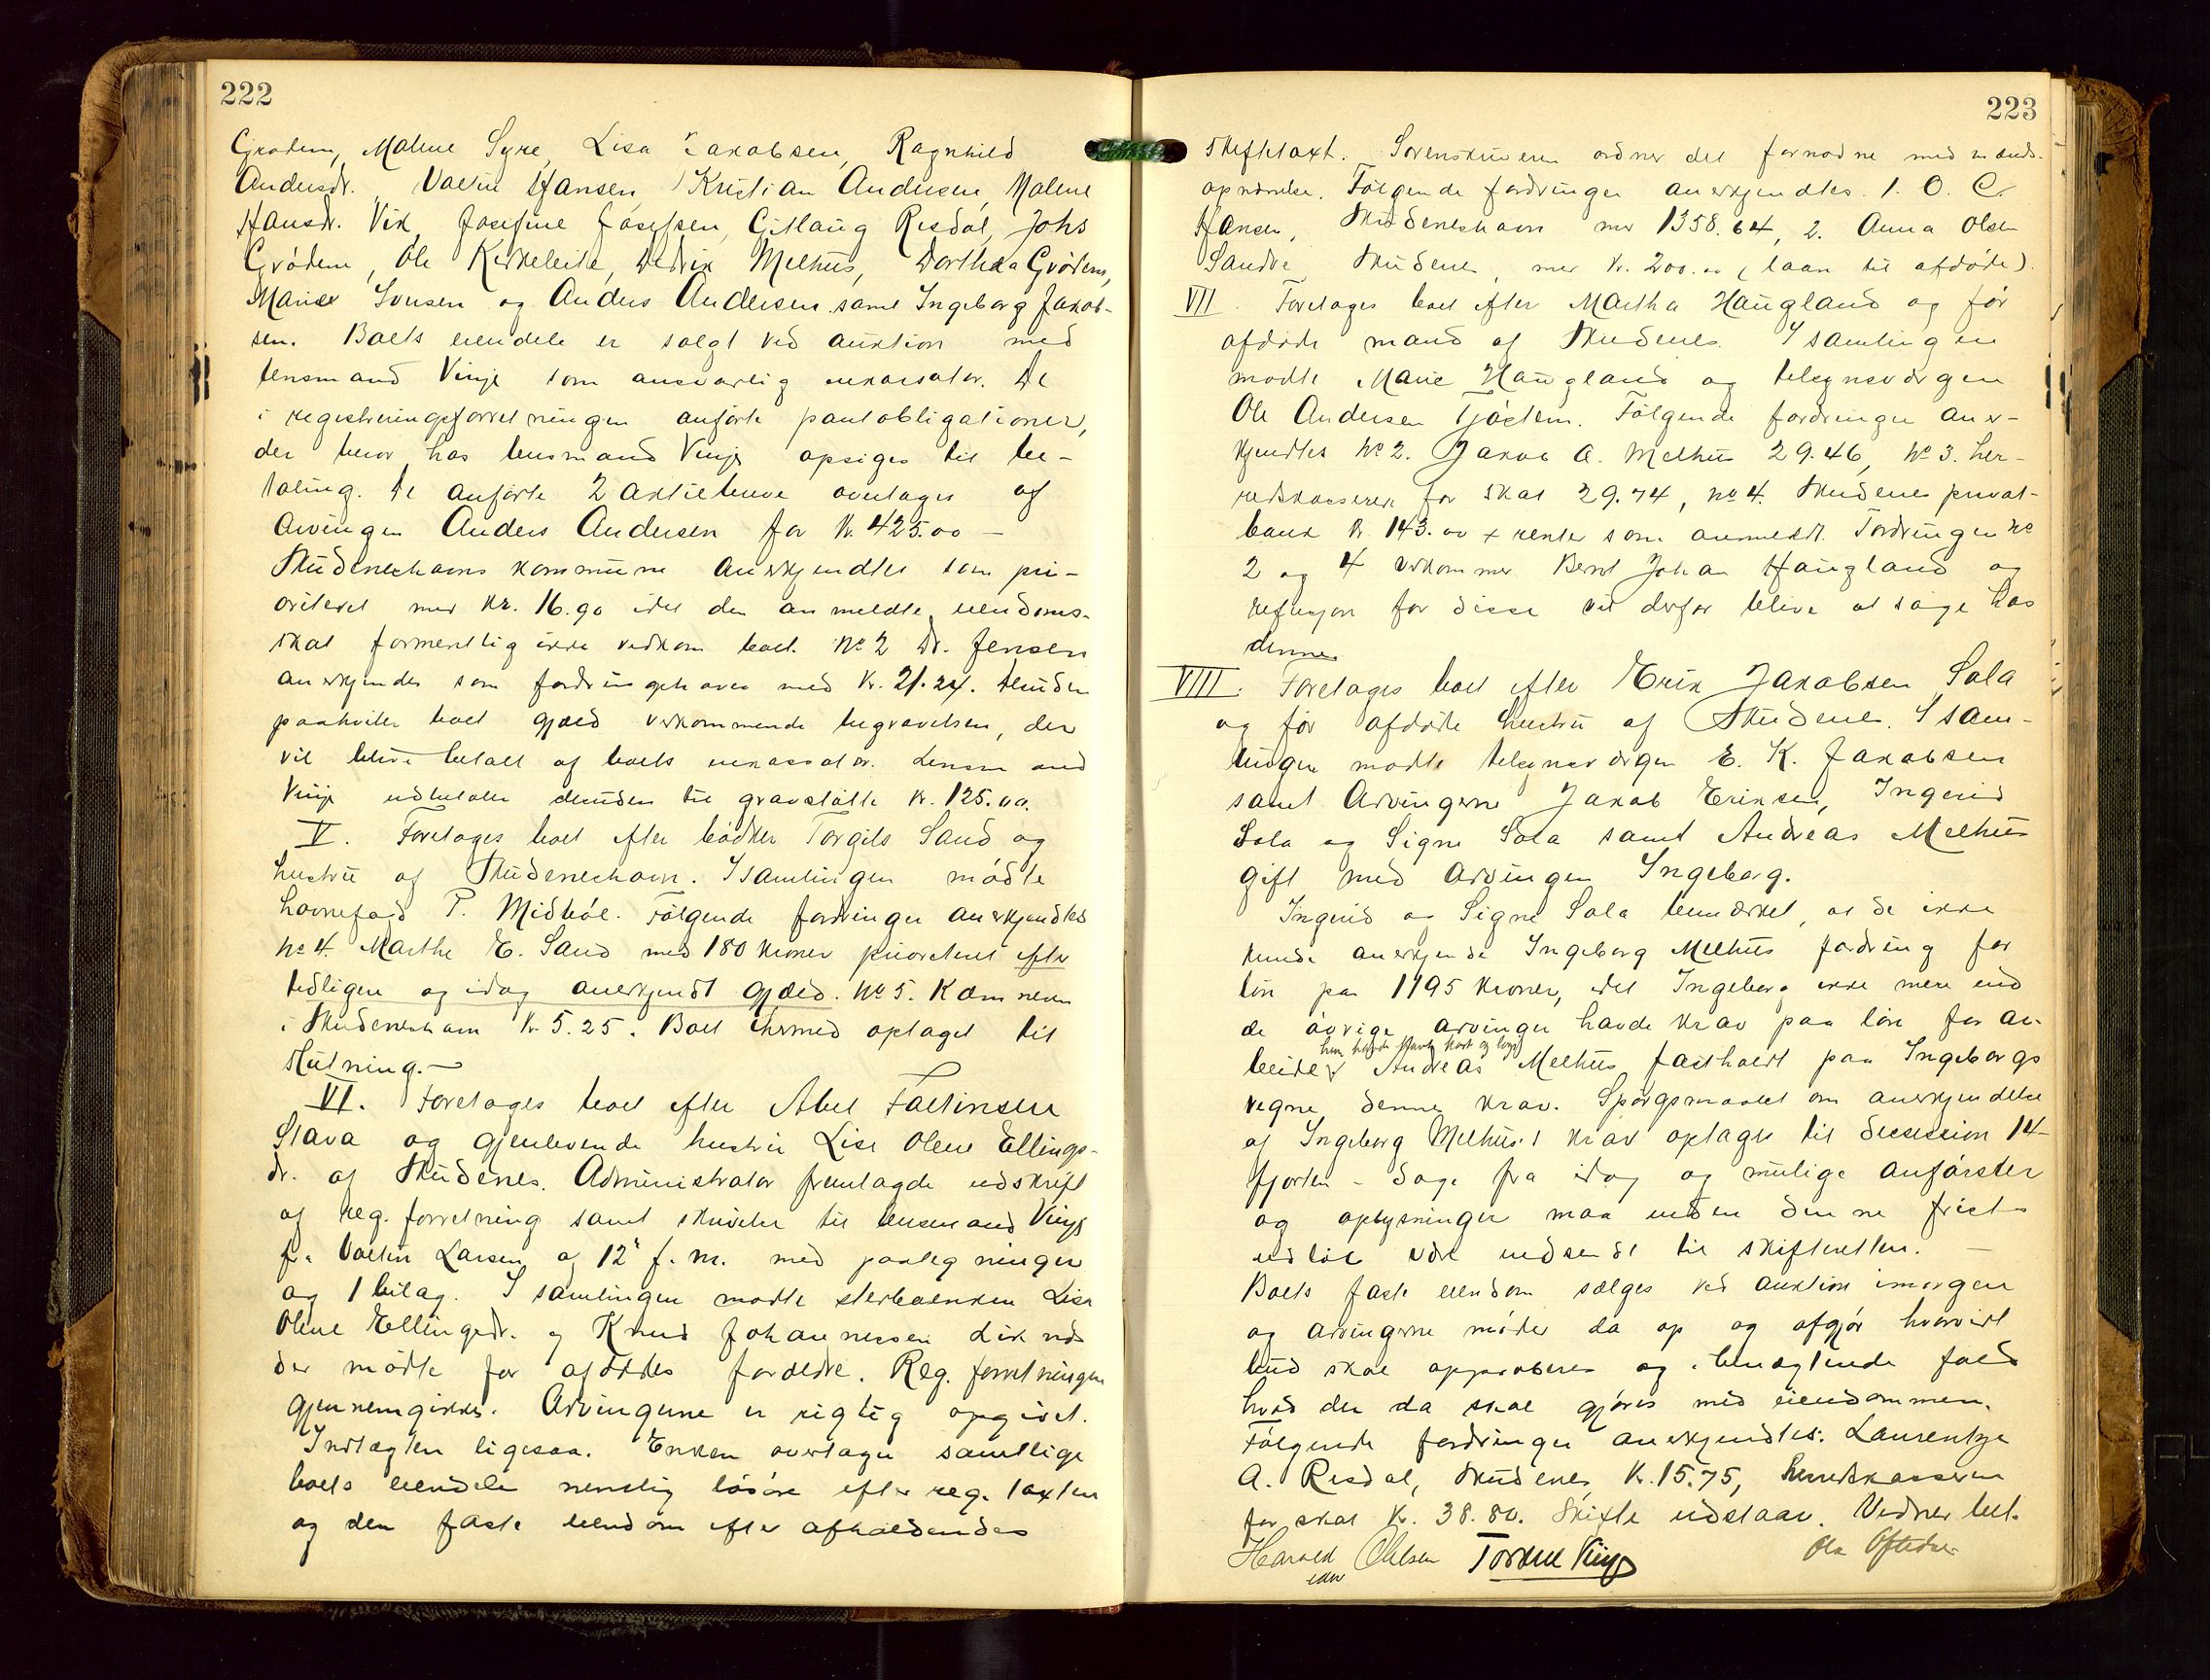 222
Grødem, Malene Syre, Lisa Jakobsen, Ragnhild
Andersdr. Valen Hansen, Kristian Andersen, Malene
Hansdr. Vik, Josefine Josefsen, Gitlaug Risdal, Johs
Grødem, Ole Kirkeleite, Didrik Melhus, Dorthea Grødem,
Marie Iversen og Anders Andersen samt Ingeborg Jakob-
sen. Boets eiendele er solgt ved auktion med
lensmand Vinje som ansvarlig inkassator. De
i registreringsforretningen anførte pantobligationer,
der beror hos lensmand Vinje opsiges til be-
taling. De anførte 2 aktiebreve overtages af
arvingen Anders Andersen for kr. 425.00 –
Skudeneshavns kommune anerkjendtes som pri-
oritetet med kr. 16.90 idet den anmeldte eiendoms-
skat formentlig ikke vedkom boet. No 2 Dr. Jensen
anerkjendes som fordringshaver med kr. 21.24. Desuden
paahviler boet gjæld vedkommende begravelsen, der
vil blive betalt af boets inkassator. Lensmand
Vinje udbetaler desuden til gravstøtte kr. 125.00.
V. Foretages boet efter bødker Torgils Sand og
hustru af Skudeneshavn. I samlingen mødte
havnefogd P. Midbøe. Følgende fordringer anerkjendtes
No 4. Marthe E. Sand med 180 kroner prioriteret efter
tidligere og idag anerkjendt gjæld. No 5. Kæmneren
i Skudeneshavn kr. 5.25. Boet hermed optaget til
slutning. –
VI. Foretages boet efter Abel Faltinsen
Stava og gjenlevende hustru Lise Olene Ellings-
dr. af Skudenes. Administrator fremlagde udskrift
af reg. forretning samt skrivelse til lensmand Vinje
fra Valen Larsen af 12' f. m. med paategninger
og 1 bilag. I samlingen mødte sterboenken Lise
Olene Ellingsdr. og Knud Johannessen
der mødte for afdødes forældre. Reg. forretningen
gjennemgikkes. Arvingerne er rigtig opgivet.
Indtægten ligesaa. Enken overtager samtlige
boets eiendele nemlig løsøre efter reg. taxten
og den faste eiendom efter afholdendes
223
skiftetaxt. Sorenskriveren ordner det fornødne med mænds-
opnævnelse. Følgende fordringer anerkjendtes. 1. O. C.
Hansen, Skudeneshavn med 1358.64, 2. Anna Olsen
Sandve, Skudenes, med kr. 200.00 (laan til afdøde).
VII. Foretages boet efter Martha Haugland og før
afdøde mand af Skudenes. I samlingen
mødte Marie Haugland og tilsynsværgen
Ole Andersen Tjøstem. Følgende fordringer aner-
kjendtes No 2. Jakob A. Melhus 29.46, No 3. her-
redskasserer for skat 29.74, No 4. Skudenes privat-
bank kr. 143.00 + renter som anmeldt. Fordringen No
2 og 4 vedkommer Bernt Johan Haugland og
refusjon for disse vil derfor blive at søge hos
denne
VIII. Foretages boet efter Erik Jakobsen Sola
og før afdøde hustru af Skudenes. I sam-
lingen mødte tilsynsværgen E. K. Jakobsen
samt arvingerne Jakob Eriksen, Ingerid
Sola og Signe Sola samt Andreas Melhus
gift med arvingen Ingeborg.
Ingerid og Signe Sola bemærket, at de ikke
kunde anerkjende Ingeborg Melhus fordring for
løn paa 1195 kroner, idet Ingeborg ikke mere end
de øvrige arvinger havde krav paa løn for ar-
beidet Andreas Melhus fastholdt paa Ingeborgs
vegne denne krav. Spørgsmaalet om anerkjendelse
af Ingeborg Melhus's krav optages til decision 14-
fjorten – dage fra idag og mulige anførsler
og oplysninger maa inden denne frists
udløb være indsendt til skifteretten. –
Boets faste eiendom sælges ved auktion imorgen
og arvingerne møder da op og afgjør hvorvidt
bud skal approberes og i benægtende fald
hvad der da skal gjøres med eiendommen.
Følgende fordringer anerkjendtes: Laurentze
A. Risdal, Skudenes, kr. 15.75, herredskassereren
for skat kr. 38.80. Skifte udstaar. Vidner bet.
Harald Ohlsen Torkel Vinje Ola Oftedal
edsv